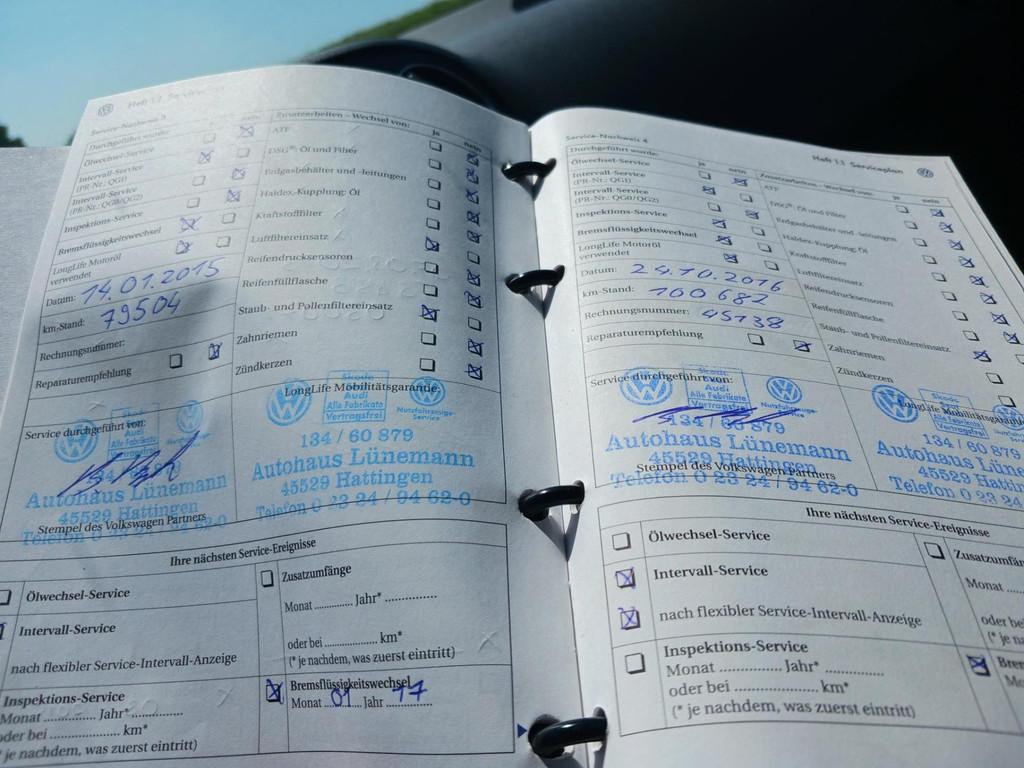 Heft 1.3 Serviceplan
Service-Nachweis 3
Durchgeführt wurde:
nein
Ölwechsel-Service
Intervall-Service
(PR-Nr.: QG1)
Intervall-Service
(PR-Nr.: QG0/QG2)
Inspektions-Service
Bremsflüssigkeitswechsel
LongLife Motoröl
verwendet
Datum: 14.01.2015
km-Stand: 79504
Rechnungsnummer:
Reparaturempfehlung
Zusatzarbeiten – Wechsel von:
ja
nein
ATF
DSG®: Öl und Filter
Erdgasbehälter und -leitungen
Haldex-Kupplung: Öl
Kraftstofffilter
Luftfiltereinsatz
Reifendrucksensoren
Reifenfüllflasche
Staub- und Pollenfiltereinsatz
Zahnriemen
Zündkerzen
Service durchgeführt von:
Skoda
Audi
Alle Fabrikate
Vertragsfrei
Autohaus Lünemann
45529 Hattingen
Stempel des Volkswagen Partners
LongLife Mobilitätsgarantie:
Skoda
Audi
Alle Fabrikate
Vertragsfrei
Nutzfahrzeuge
Service
134 / 60 879
Autohaus Lünemann
45529 Hattingen
Telefon 0 23 24 / 94 62-0
Ihre nächsten Service-Ereignisse
Ölwechsel-Service
Intervall-Service
nach flexibler Service-Intervall-Anzeige
Inspektions-Service
Monat .............. Jahr* ..............
oder bei .................... km*
(* je nachdem, was zuerst eintritt)
Zusatzumfänge
Monat .............. Jahr* ..............
oder bei .................... km*
(* je nachdem, was zuerst eintritt)
Bremsflüssigkeitswechsel
Monat 01 Jahr 17
Service-Nachweis 4
Heft 1.3 Serviceplan
Durchgeführt wurde:
ja
nein
Ölwechsel-Service
Intervall-Service
(PR-Nr.: QG1)
Intervall-Service
(PR-Nr.: QG0/QG2)
Inspektions-Service
Bremsflüssigkeitswechsel
LongLife Motoröl
verwendet
Datum: 24.10.2016
km-Stand: 100682
Rechnungsnummer: 45138
Reparaturempfehlung
Zusatzarbeiten – Wechsel von:
ja
nein
ATF
DSG®: Öl und Filter
Erdgasbehälter und -leitungen
Haldex-Kupplung: Öl
Kraftstofffilter
Luftfiltereinsatz
Reifendrucksensoren
Reifenfüllflasche
Staub- und Pollenfiltereinsatz
Zahnriemen
Zündkerzen
Service durchgeführt von:
Skoda
Audi
Alle Fabrikate
Vertragsfrei
Nutzfahrzeuge
Service
134 / 60 879
Autohaus Lünemann
45529 Hattingen
Stempel des Volkswagen Partners
Telefon 0 23 24 / 94 62-0
LongLife Mobilitätsgarantie
Skoda
Audi
Alle Fabrikate
Vertragsfrei
134 / 60 879
Autohaus Lüne
45529 Hatting
Telefon 0 23 24
Ihre nächsten Service-Ereignisse
Ölwechsel-Service
Intervall-Service
nach flexibler Service-Intervall-Anzeige
Inspektions-Service
Monat .............. Jahr* ..............
oder bei .................... km*
(* je nachdem, was zuerst eintritt)
Zusatzumfän
Monat ........
oder bei
(* je n
Brem
Mo